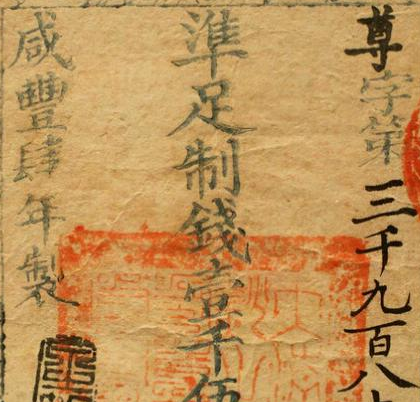 尊字第三千九百八
準足制錢壹千
咸豐肆年製